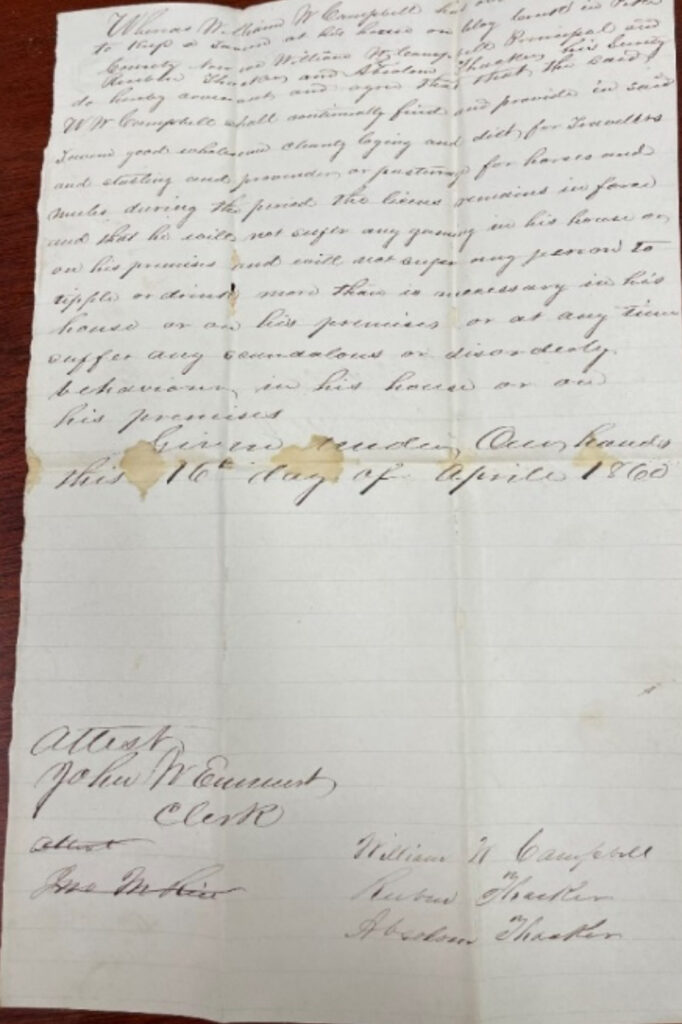 Whereas William W Campbell has
to keep a Tavern at his house on blog Creek in Pike
County Now we William W Campbell Principal and
Reuben Thacker and Absolom Thacker his Surety
do hereby covenant and agree that that the said
W W Campbell shall continually find and provide in said
Tavern good wholesome cleanly loging and diet for Travellers
and stabling and provender or pasturage for horses and
mules during the period the licens remains in force
and that he will not suffer any gaming in his house or
on his premises and will not suffer any person to
tipple or drink more than is necessary in his
house or on his premises or at any time
suffer any scandalous or disorderly
behaviour in his house or on
his premises
Given under Our hands
this 16th day of Aprile 1860
Attest
John W Emmert
Clerk
Attest
Jno M Rice
William W Campbell
Reuben Thacker
Absolom Thacker